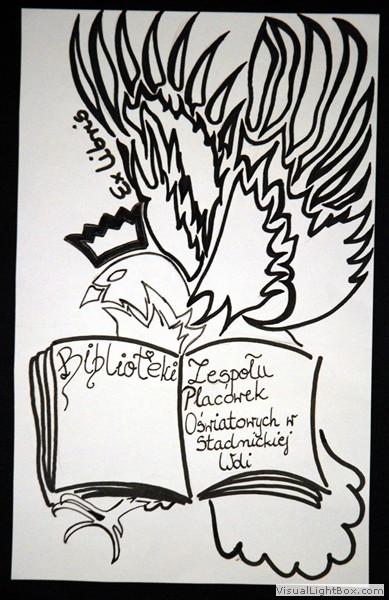 Ex Libris
Biblioteki
Zespołu
Placówek
Oświatowych w
Stadnickiej
Woli
VisualLightBox.com